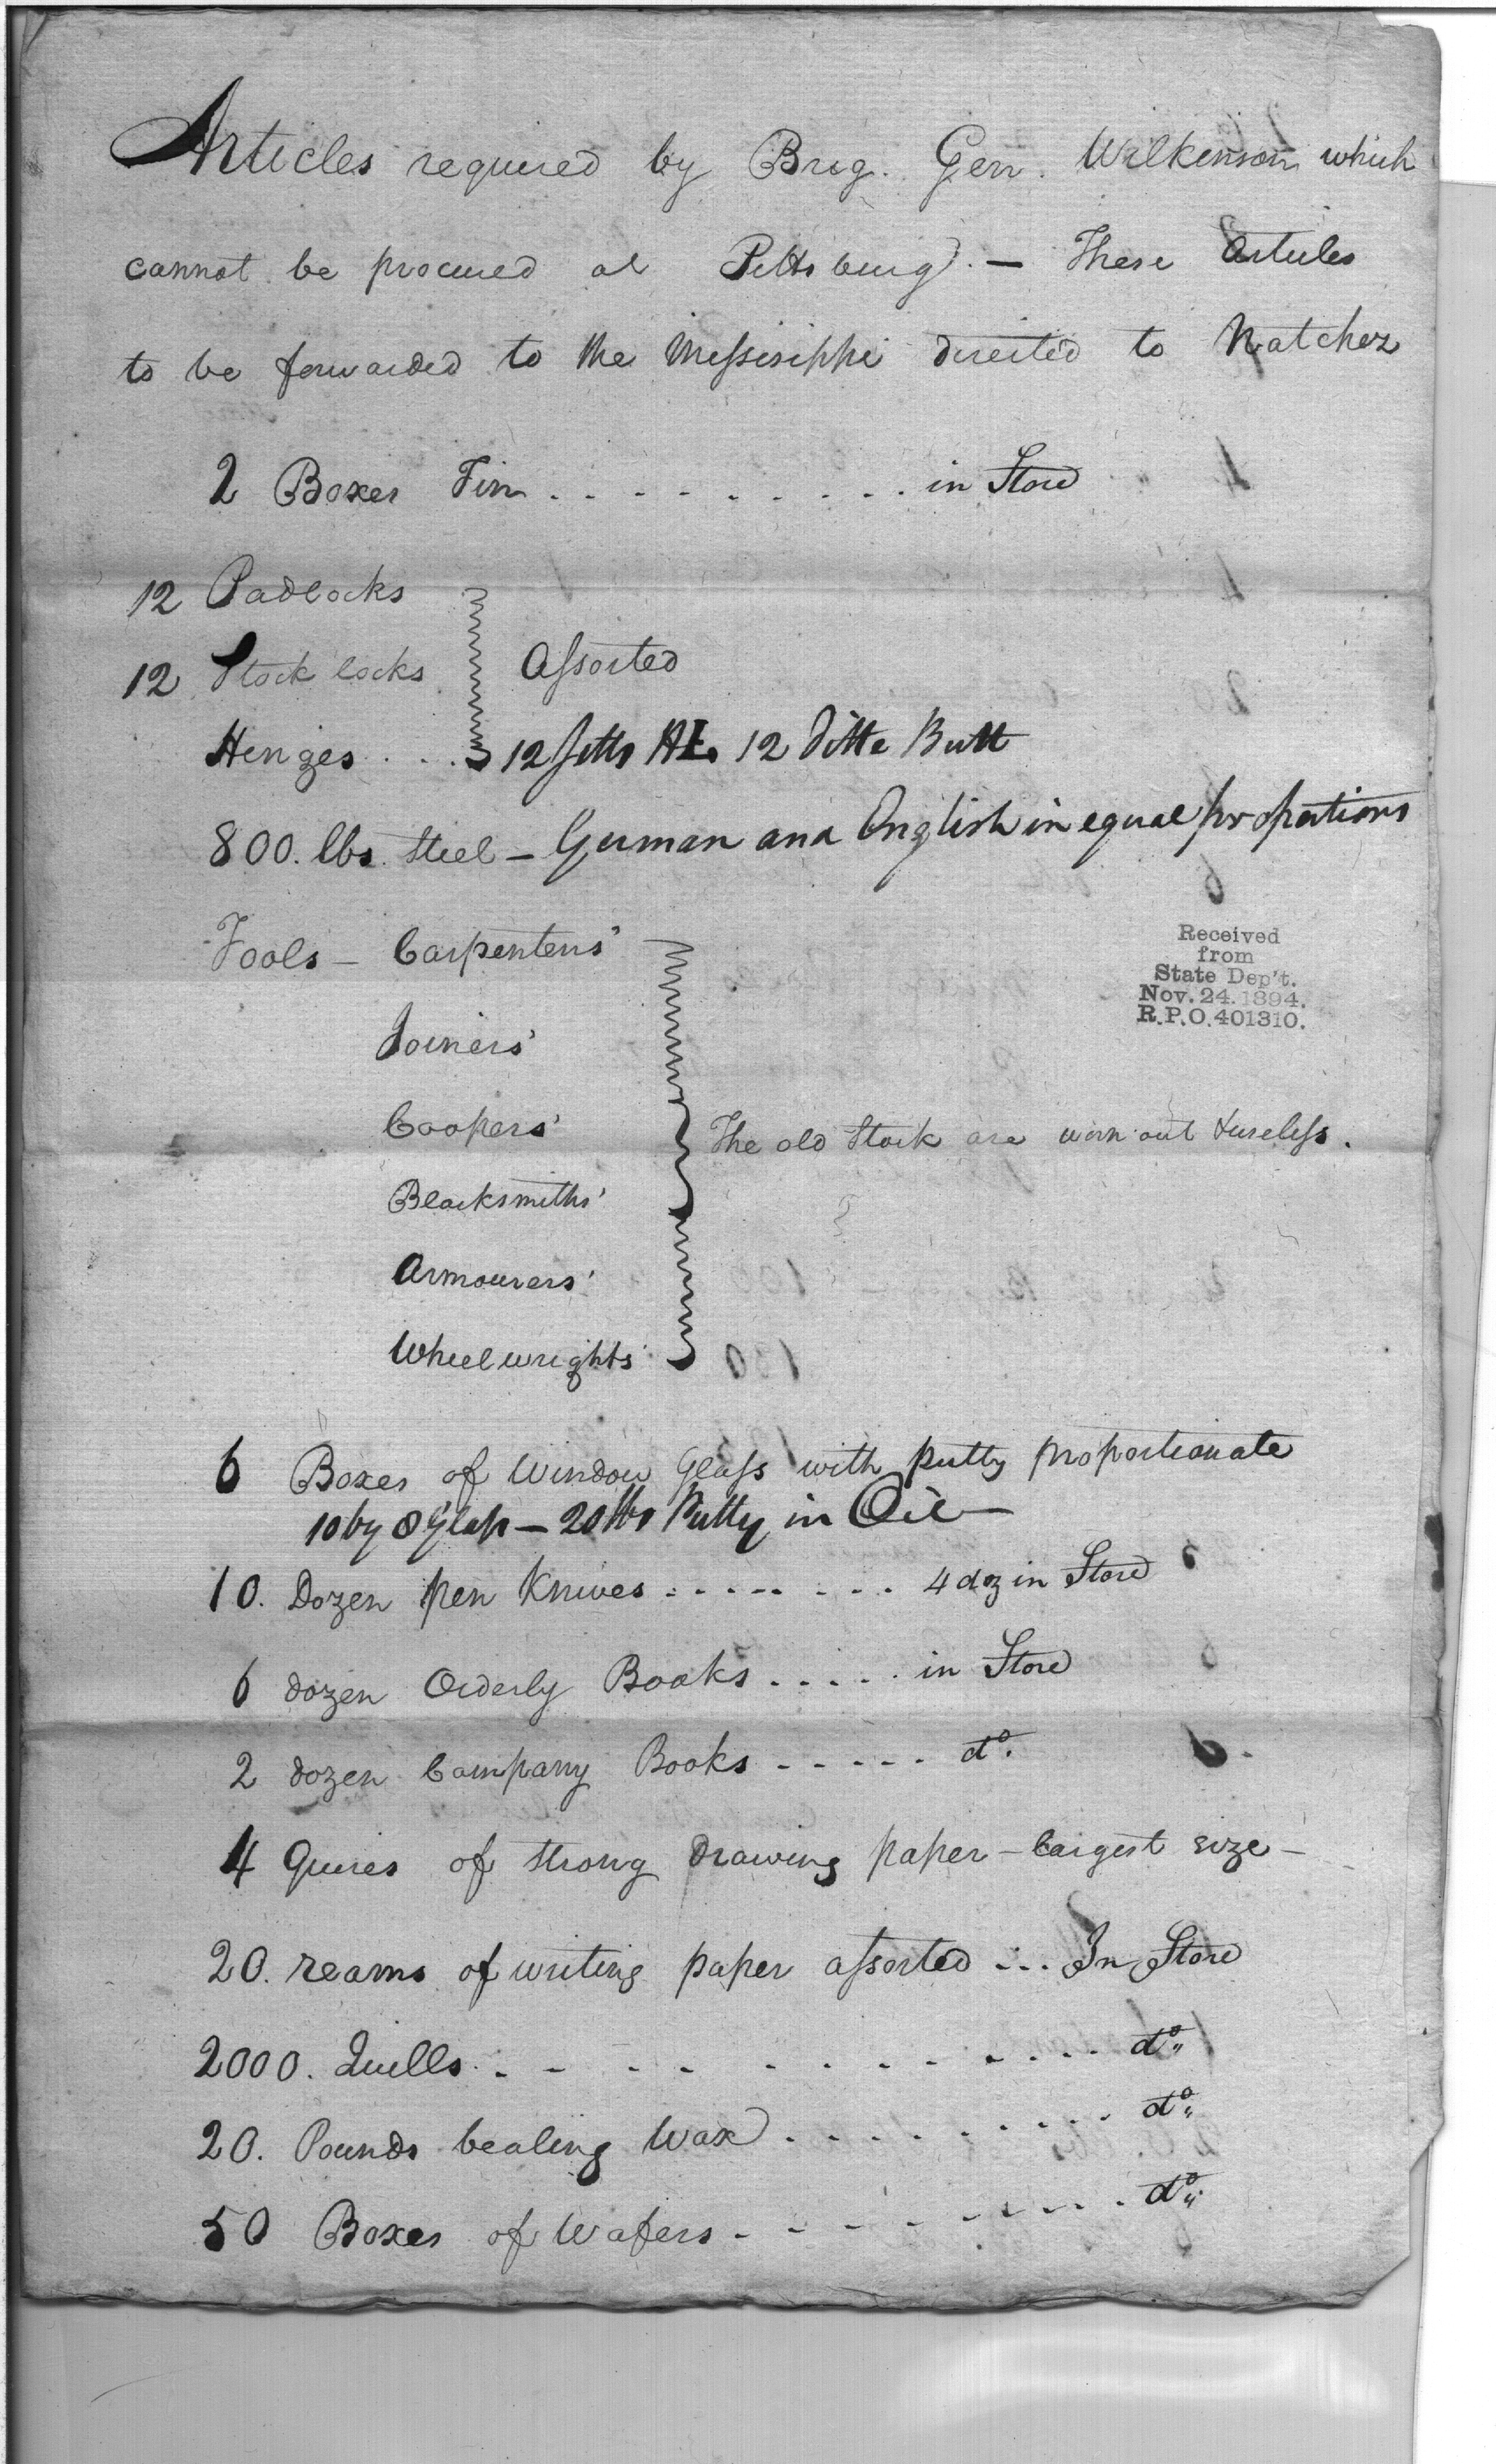 Articles required by Brig. Gen. Wilkinson which
cannot be procured at Pittsburg. — These Articles
to be forwarded to the Missisippi directed to Natchez
2 Boxes Tin . . . . . . . . . . in Store
12 Padlocks
12 Stock locks Assorted
Henges . . . 12 setts HL. 12 Ditto Butt
800. lbs. Steel — German and English in equal proportions
Received
from
State Dep't.
Nov. 24. 1894.
R.P.O. 401310.
Tools — Carpenters'
Joiners'
Coopers' The old Stock are worn out & useless.
Blacksmiths'
Armourers'
Wheelwrights'
6 Boxes of Window Glass with putty proportionate
10 by 8 Glass — 20 lbs Putty in Oil —
10. Dozen pen Knives . . . . . . . 4 doz in Store
6 dozen Orderly Books . . . . . in Store
2 dozen Company Books - - - - - do.
4 Quires of strong drawing paper — largest size —
20. reams of writing paper assorted . . . In Store
2000. Quills . - - - - - . . . . . . . do"
20. Pounds Sealing Wax . . . . . . . . . do"
50 Boxes of Wafers - - - - - - - - . do"